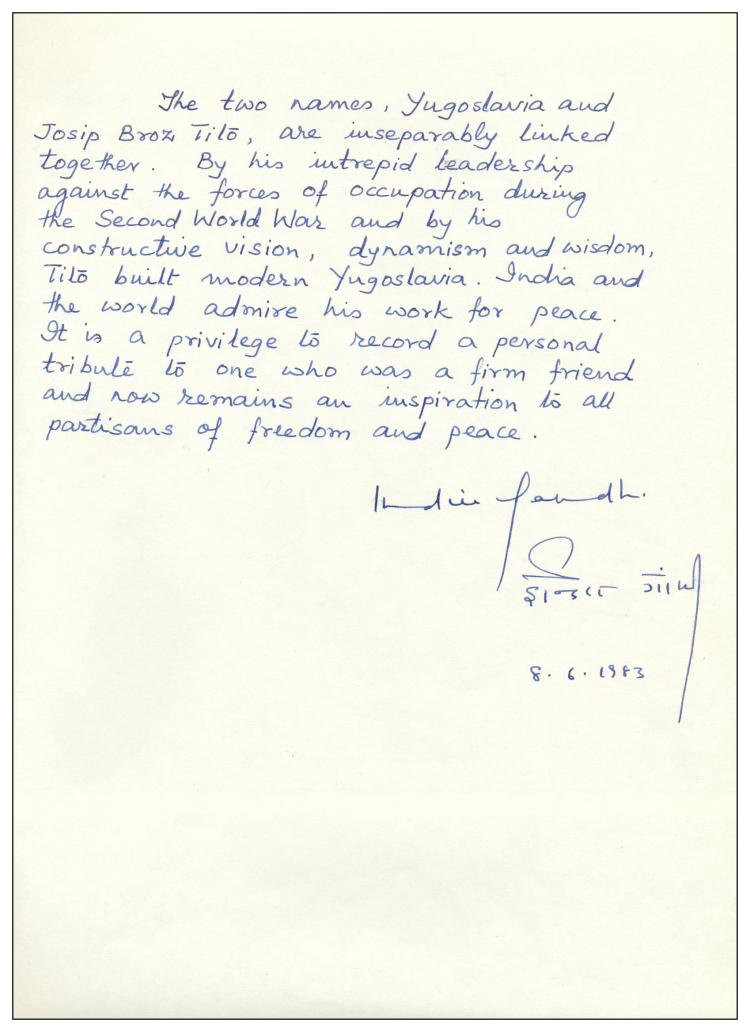 The two names, Yugoslavia and
Josip Broz Tito, are inseparably linked
together. By his intrepid leadership
against the forces of occupation during
the Second World War and by his
constructive vision, dynamism and wisdom,
Tito built modern Yugoslavia. India and
the world admire his work for peace.
It is a privilege to record a personal
tribute to one who was a firm friend
and now remains an inspiration to all
partisans of freedom and peace.
Indira Gandhi
इन्दिरा गांधी
8.6.1983